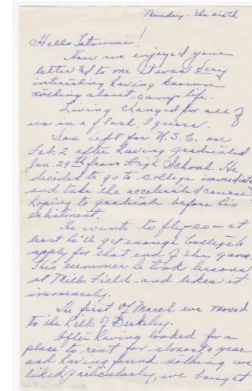 Monday - the sixth
Hello Tatsumi!
How we enjoyed your
letter Ed to me it was very
interesting having known
nothing about camp life.
Living changed for all of
us in a flash I guess.
Don left for W.S.C. on
Feb. 2 after having graduated
Jan 29th from High School. He
decided to go to college immediately
and take the accelerated course
hoping to graduate before his
enlistment.
He wants to fly - so - at
least he'll get enough college to
apply for that end of the game.
This summer he took lessons
at Mills Field - and likes it
immensely.
The first of March we moved
to the hills of Berkeley.
After having looked for a
place to rent for almost a year
and having found nothing we
liked particularly, we